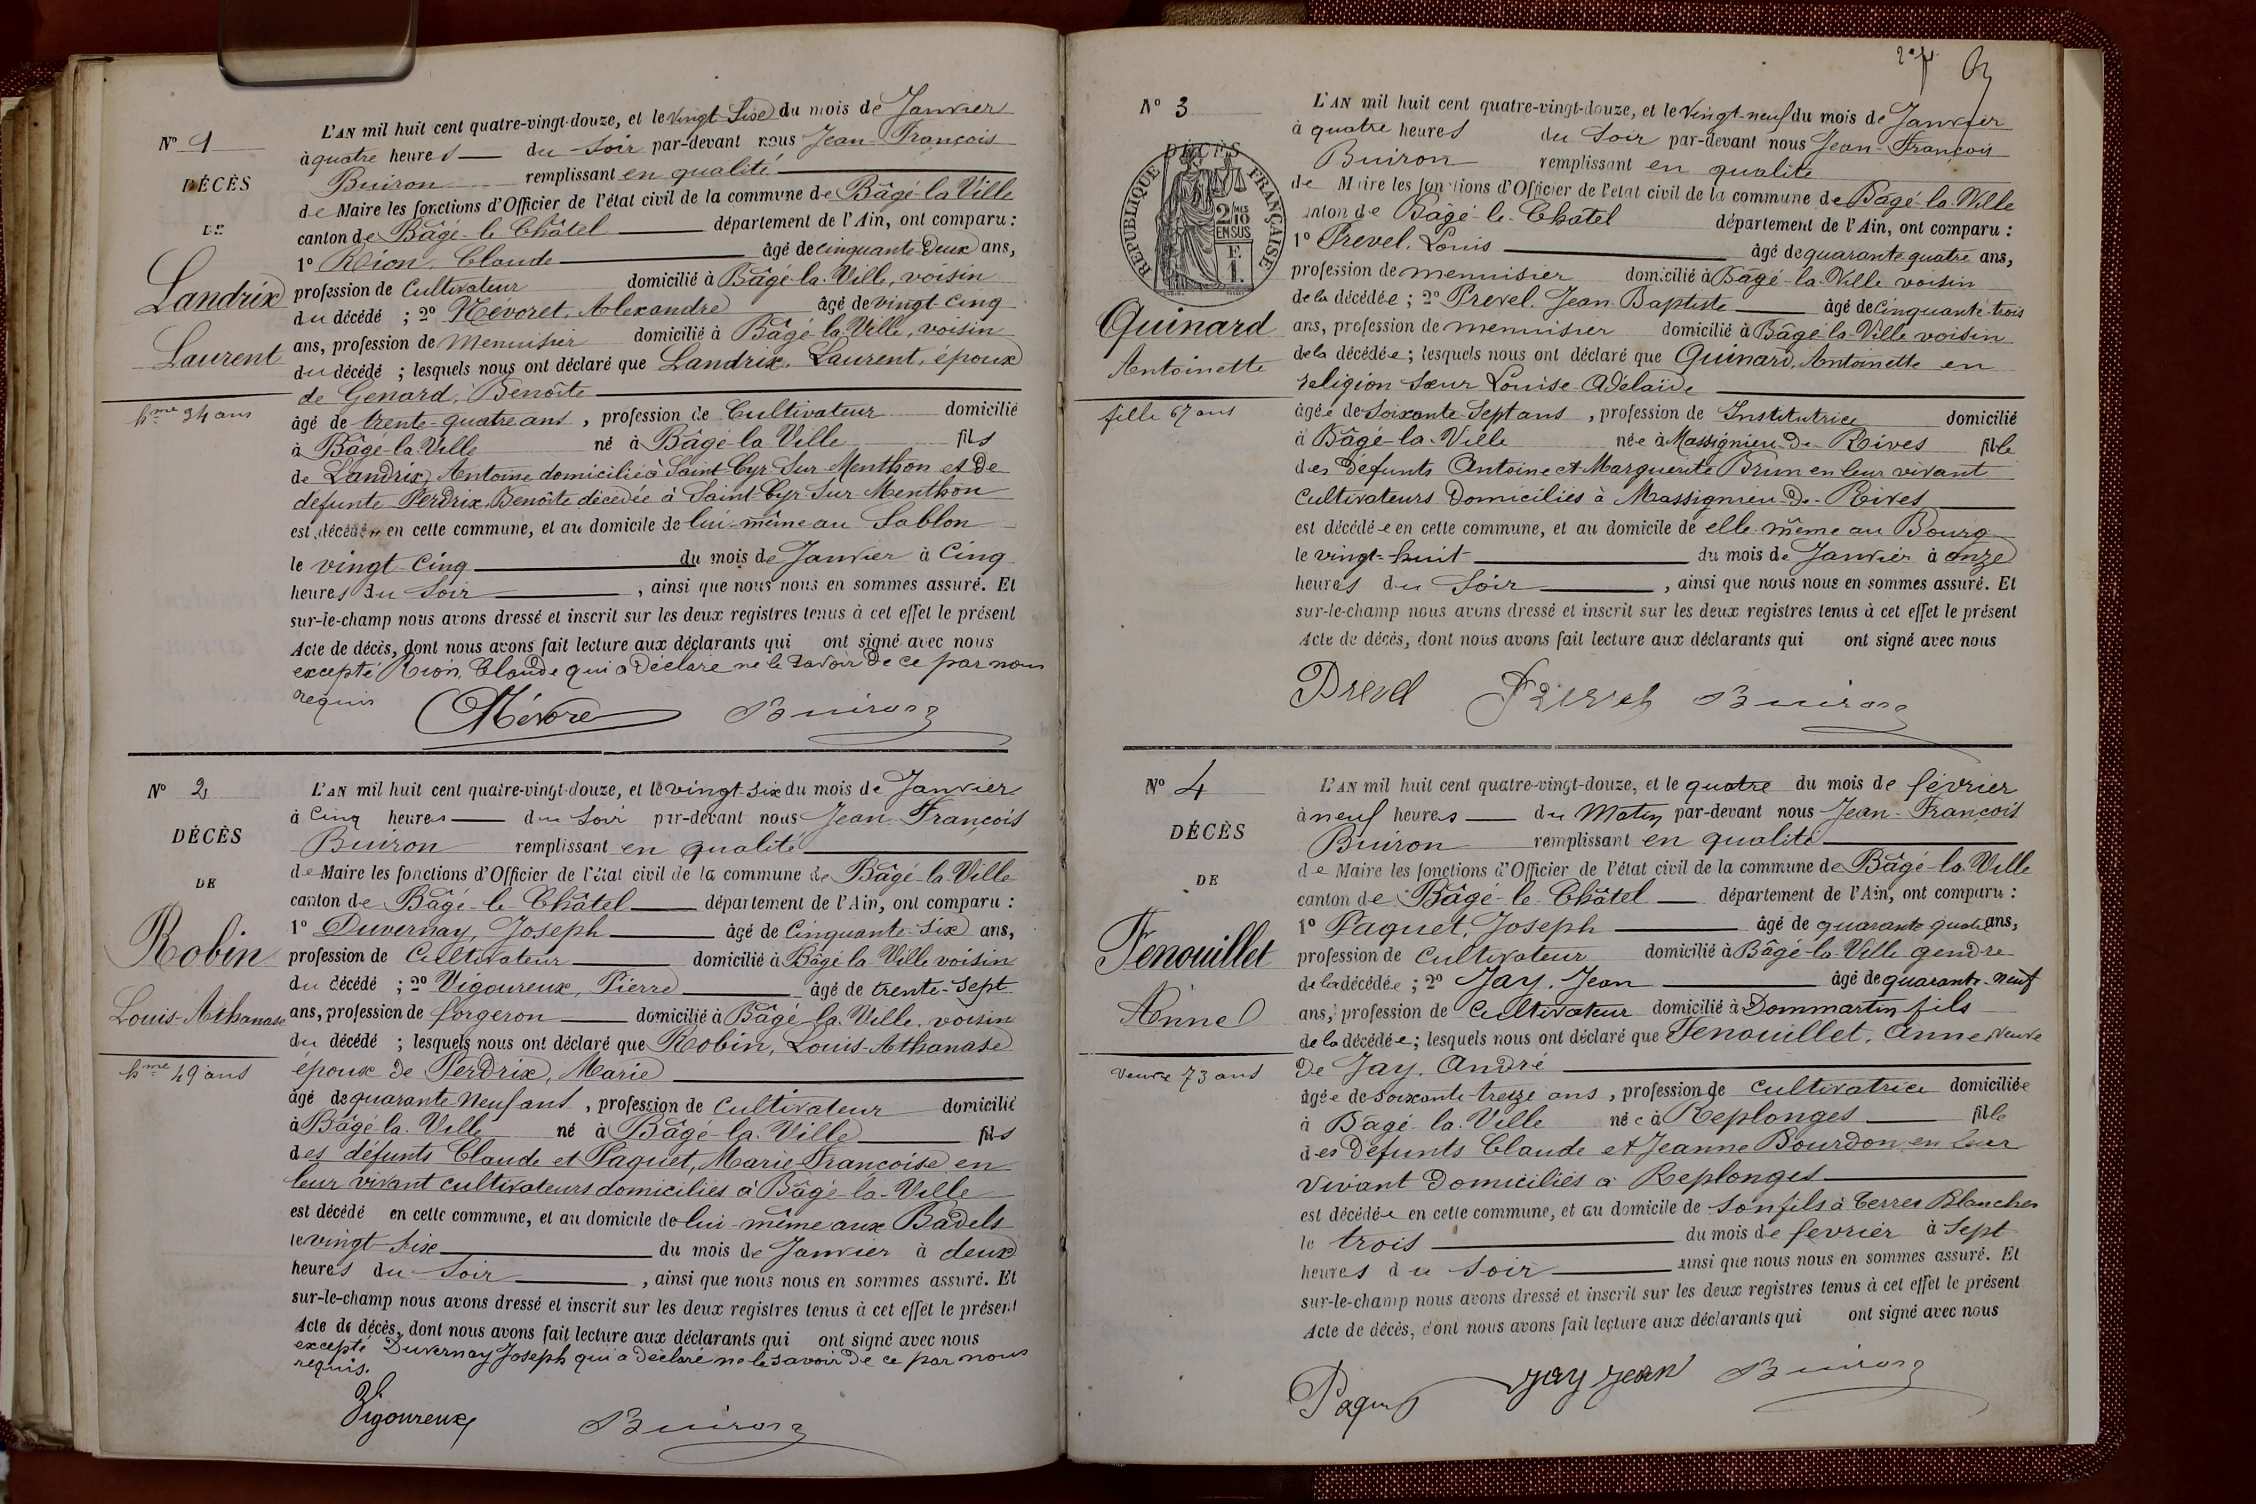 Nº 1
DÉCÈS
DE
Landrix
Laurent
hme 34 ans
L'AN mil huit cent quatre-vingt-douze, et le vingt-Six du mois de Janvier
à quatre heures du Soir par-devant nous Jean-François
Buiron remplissant en qualité
de Maire les fonctions d'Officier de l'état civil de la commune de Bâgé-la-Ville
canton de Bâgé-le-Châtel département de l'Ain, ont comparu :
1º Rion, Claude âgé de cinquante-deux ans,
profession de Cultivateur domicilié à Bâgé-la-Ville, voisin
du décédé ; 2º Névoret, Alexandre âgé de vingt cinq
ans, profession de Menuisier domicilié à Bâgé-la-Ville, voisin
du décédé ; lesquels nous ont déclaré que Landrix, Laurent, époux
de Genard, Benoîte
âgé de trente-quatre ans, profession de Cultivateur domicilié
à Bâgé-la-Ville né à Bâgé-la-Ville fils
de Landrix, Antoine domicilié à Saint-Cyr-Sur-Menthon et de
défunte Perdrix, Benoîte décédée à Saint-Cyr-Sur-Menthon
est décédé en cette commune, et au domicile de lui-même au Sablon
le vingt-cinq du mois de Janvier à Cinq
heures du Soir, ainsi que nous nous en sommes assuré. Et
sur-le-champ nous avons dressé et inscrit sur les deux registres tenus à cet effet le présent
Acte de décès, dont nous avons fait lecture aux déclarants qui ont signé avec nous
excepté Rion, Claude qui a déclaré ne le savoir de ce par nous
requis
Buiron
Nº 2
DÉCÈS
DE
Robin
Louis-Athanase
hme 49 ans
L'AN mil huit cent quatre-vingt-douze, et le vingt-six du mois de Janvier
à Cinq heures du Soir par-devant nous Jean-François
Buiron remplissant en qualité
de Maire les fonctions d'Officier de l'état civil de la commune de Bâgé-la-Ville
canton de Bâgé-le-Châtel département de l'Ain, ont comparu :
1º Duvernay, Joseph âgé de Cinquante-Six ans,
profession de Cultivateur domicilié à Bâgé-la-Ville voisin
du décédé ; 2º Vigoureux, Pierre âgé de trente-Sept
ans, profession de forgeron domicilié à Bâgé-la-Ville, voisin
du décédé ; lesquels nous ont déclaré que Robin, Louis-Athanase
époux de Perdrix, Marie
âgé de quarante-Neuf ans, profession de Cultivateur domicilié
à Bâgé-la-Ville né à Bâgé-la-Ville fils
des défunts Claude et Paquet, Marie-Françoise en
leur vivant cultivateurs domiciliés à Bâgé-la-Ville
est décédé en cette commune, et au domicile de lui-même aux Badels
le vingt-Six du mois de Janvier à deux
heures du Soir, ainsi que nous nous en sommes assuré. Et
sur-le-champ nous avons dressé et inscrit sur les deux registres tenus à cet effet le présent
Acte de décès, dont nous avons fait lecture aux déclarants qui ont signé avec nous
excepté Duvernay Joseph qui a déclaré ne le savoir de ce par nous
requis.
Vigoureux Buiron
Nº 3
DÉCÈS
RÉPUBLIQUE FRANÇAISE
2/10mes
EN SUS
F.
1.
Guinard
Antoinette
fille 67 ans
L'AN mil huit cent quatre-vingt-douze, et le Vingt-neuf du mois de Janvier
à quatre heures du Soir par-devant nous Jean-François
Buiron remplissant en qualité
de Maire les fonctions d'Officier de l'état civil de la commune de Bâgé-la-Ville
canton de Bâgé-le-Châtel département de l'Ain, ont comparu :
1º Prevel, Louis âgé de quarante quatre ans,
profession de menuisier domicilié à Bâgé-la-Ville voisin
de la décédée ; 2º Prevel, Jean-Baptiste âgé de Cinquante-trois
ans, profession de menuisier domicilié à Bâgé-la-Ville voisin
de la décédée ; lesquels nous ont déclaré que Guinard, Antoinette en
religion Sœur Louise-Adélaïde
âgée de Soixante-Sept ans, profession de Institutrice domicilié
à Bâgé-la-Ville née à Massignieu-De-Rives fille
des défunts Antoine et Marguerite Brun en leur vivant
Cultivateurs Domiciliés à Massignieu-De-Rives
est décédée en cette commune, et au domicile de elle-même au Bourg
le vingt-huit du mois de Janvier à onze
heures du Soir, ainsi que nous nous en sommes assuré. Et
sur-le-champ nous avons dressé et inscrit sur les deux registres tenus à cet effet le présent
Acte de décès, dont nous avons fait lecture aux déclarants qui ont signé avec nous
Prevel Prevel Buiron
Nº 4
DÉCÈS
DE
Fenouillet
Anne
veuve 73 ans
L'AN mil huit cent quatre-vingt-douze, et le quatre du mois de février
à neuf heures du Matin par-devant nous Jean-François
Buiron remplissant en qualité
de Maire les fonctions d'Officier de l'état civil de la commune de Bâgé-la-Ville
canton de Bâgé-le-Châtel département de l'Ain, ont comparu :
1º Paquet, Joseph âgé de quarante quatre ans,
profession de Cultivateur domicilié à Bâgé-la-Ville gendre
de la décédée ; 2º Jay, Jean âgé de quarante-neuf
ans, profession de Cultivateur domicilié à Dommartin fils
de la décédée ; lesquels nous ont déclaré que Fenouillet, Anne, veuve
de Jay, André
âgée de soixante-treize ans, profession de Cultivatrice domiciliée
à Bâgé-la-Ville née à Replonges fille
des Défunts Claude et Jeanne Bourdon en leur
vivant Domiciliés à Replonges
est décédée en cette commune, et au domicile de son fils à Terres Blanches
le trois du mois de février à sept
heures du Soir ainsi que nous nous en sommes assuré. Et
sur-le-champ nous avons dressé et inscrit sur les deux registres tenus à cet effet le présent
Acte de décès, dont nous avons fait lecture aux déclarants qui ont signé avec nous
Jay Jean Buiron